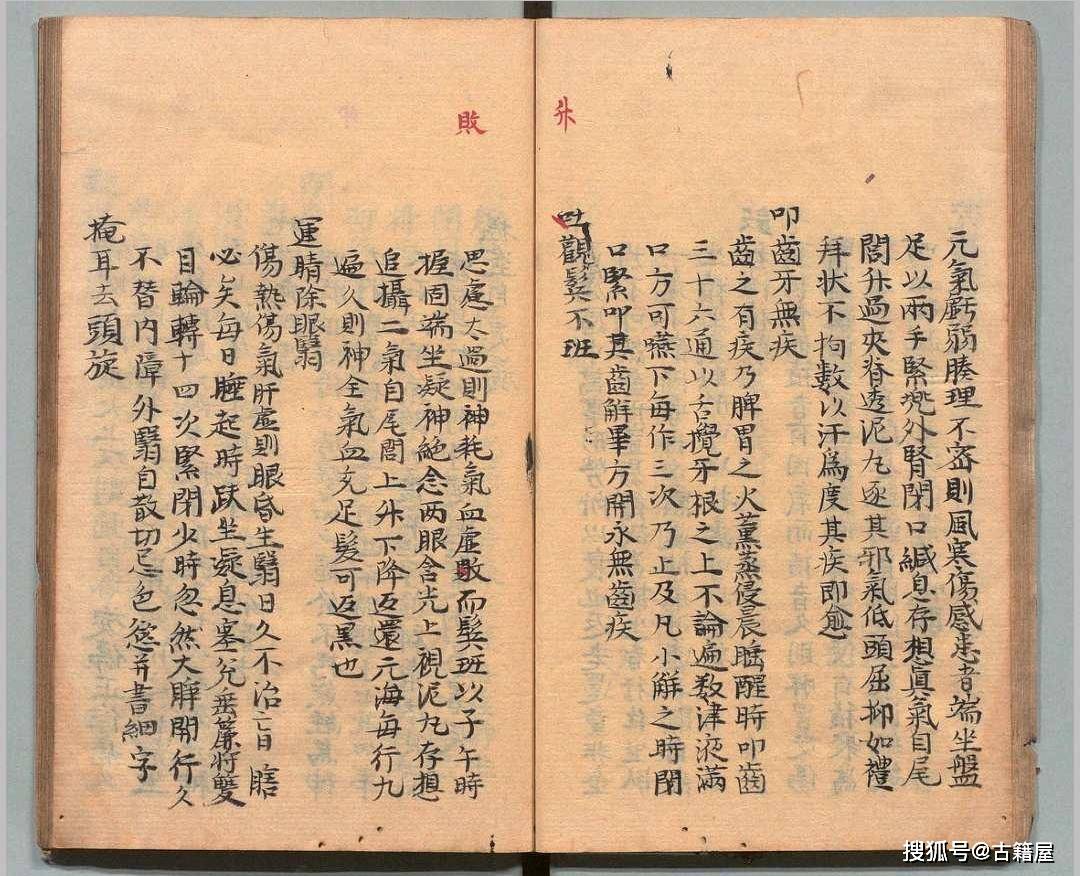 升
元氣虧弱腠理不密則風寒傷感患者端坐盤
足以兩手緊兜外腎閉口緘息存想真氣自尾
閭升過夾脊透泥丸逐其邪氣低頭屈抑如禮
拜狀不拘數以汗為度其疾即愈
叩齒牙無疾
齒之有疾乃脾胃之火薰蒸侵晨睡醒時叩齒
三十六通以舌攪牙根之上不論遍数津液滿
口方可嚥下每作三次乃止及凡小解之時閉
口緊叩其齒解畢方開永無齒疾
觀鬂不班
敗
思慮太過則神耗氣血虛敗而鬂班以子午時
握固端坐凝神絕念両眼含光上視泥丸存想
追攝二氣自尾閭上升下降返還元海每行九
遍久則神全氣血充足髮可返黑也
運睛除眼翳
傷熱傷氣肝虛則眼昏生翳日久不治 日瞎
必矣每日睡起時趺坐凝息塞兊垂簾將雙
目輪轉十四次緊閉少時忽然大睜開行久
不替内障外翳自散切忌色慾并書細字
掩耳去頭旋
搜狐号@古籍屋